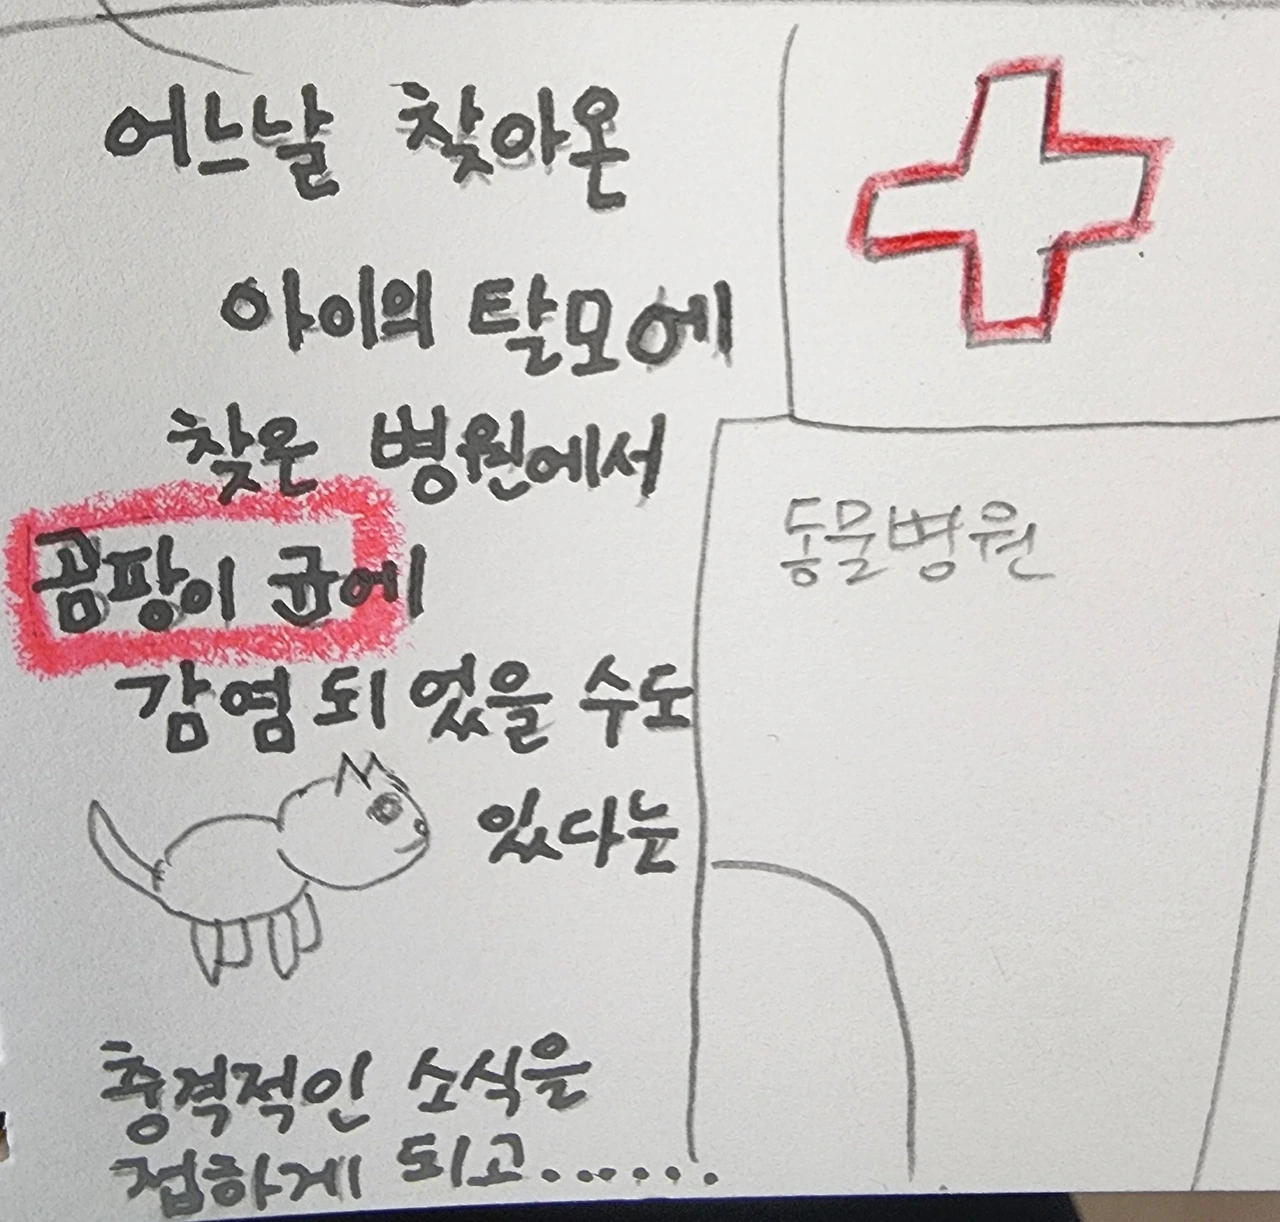 어느날 찾아온
아이의 탈모에
찾은 병원에서
곰팡이 균에
감염되었을 수도
있다는
충격적인 소식을
접하게 되고......
동물병원